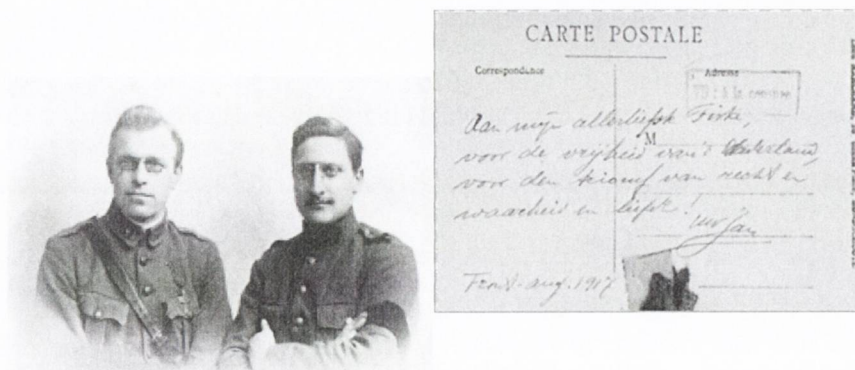 CARTE POSTALE
Correspondance
Adresse
VU à la censure
Aan mijn allerliefste Firke,
M
voor de vrijheid van 't Vaderland,
voor den triomf van recht en
waarheid en liefde!
uw Jan
Front - aug. 1917